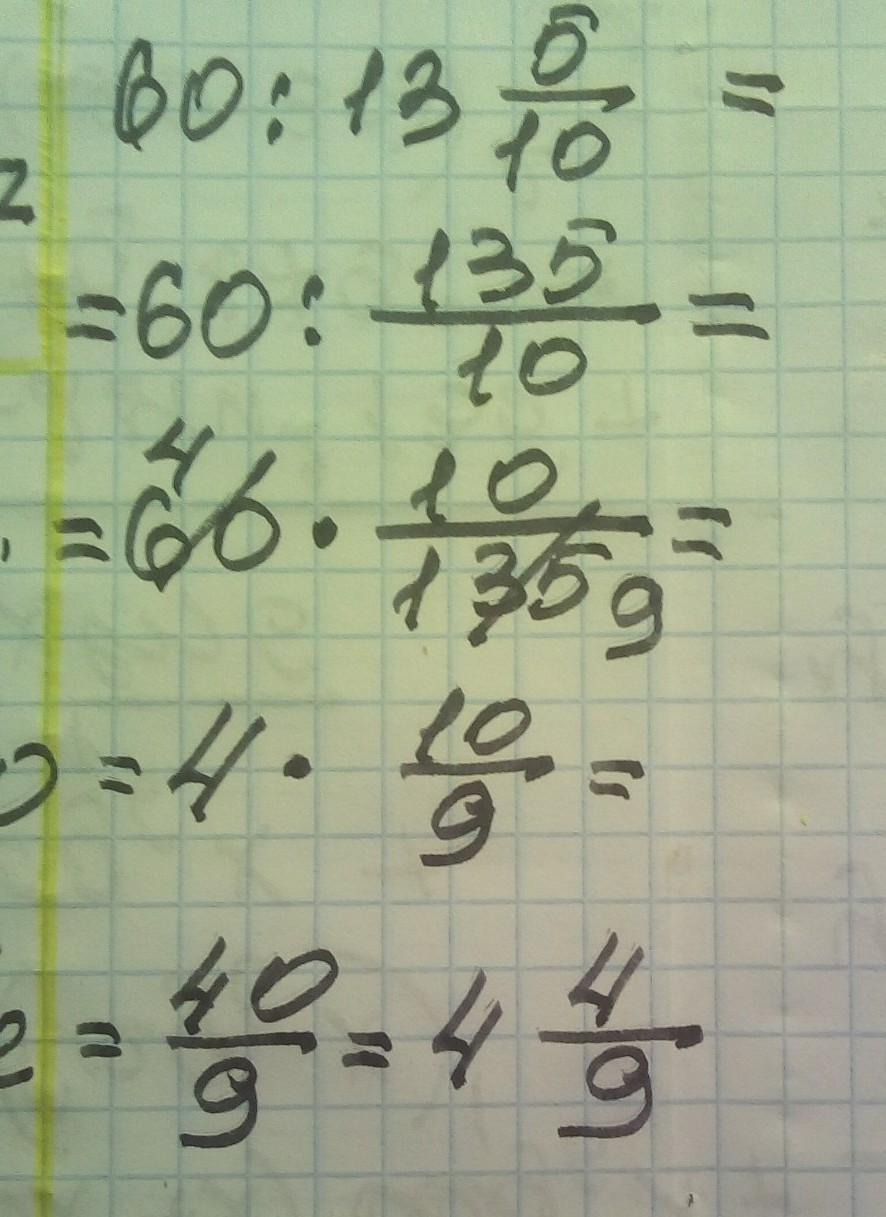 60 : 13 5/10 =
= 60 : 135/10 =
4
= 60 · 10/135 9 =
= 4 · 10/9 =
= 40/9 = 4 4/9